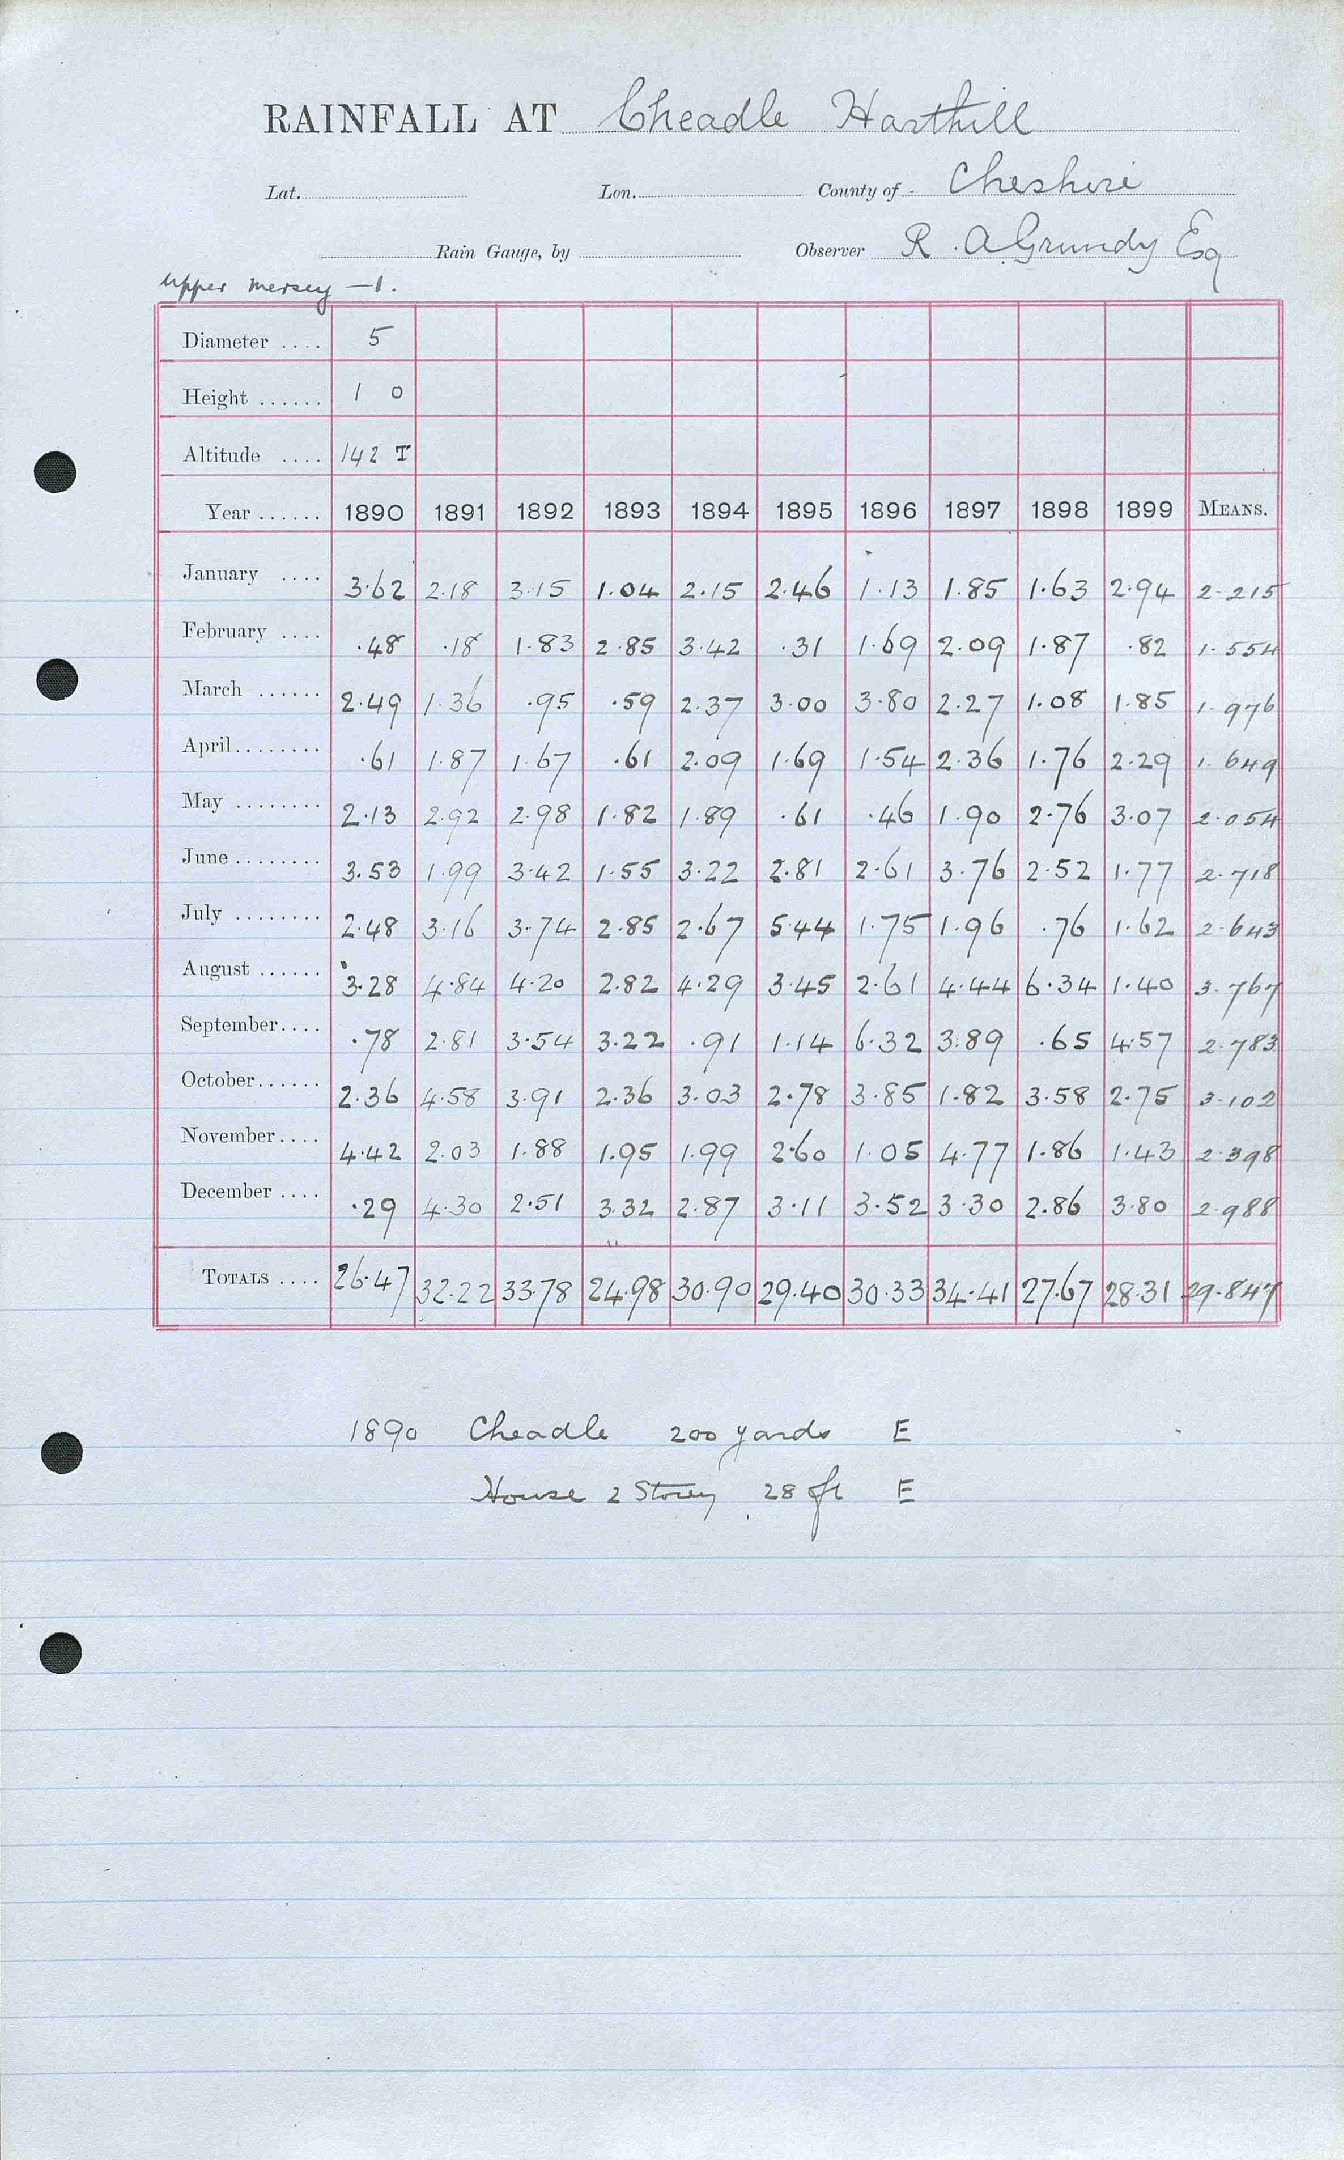 RAINFALL AT Cheadle Harthill
Lat. Lon. County of Cheshire
Rain Gauge, by Observer R. A Grundy Esq
Upper Mersey —1.
Diameter .... 5
Height ...... 1 0
Altitude .... 142 T
Year ...... 1890 1891 1892 1893 1894 1895 1896 1897 1898 1899 MEANS.
January .... 3.62 2.18 3.15 1.04 2.15 2.46 1.13 1.85 1.63 2.94 2.215
February .... .48 .18 1.83 2.85 3.42 .31 1.69 2.09 1.87 .82 1.554
March ...... 2.49 1.36 .95 .59 2.37 3.00 3.80 2.27 1.08 1.85 1.976
April........ .61 1.87 1.67 .61 2.09 1.69 1.54 2.36 1.76 2.29 1.649
May ........ 2.13 2.92 2.98 1.82 1.89 .61 .46 1.90 2.76 3.07 2.054
June ........ 3.53 1.99 3.42 1.55 3.22 2.81 2.61 3.76 2.52 1.77 2.718
July ........ 2.48 3.16 3.74 2.85 2.67 5.44 1.75 1.96 .76 1.62 2.643
August ...... 3.28 4.84 4.20 2.82 4.29 3.45 2.61 4.44 6.34 1.40 3.767
September.... .78 2.81 3.54 3.22 .91 1.14 6.32 3.89 .65 4.57 2.783
October...... 2.36 4.58 3.91 2.36 3.03 2.78 3.85 1.82 3.58 2.75 3.102
November.... 4.42 2.03 1.88 1.95 1.99 2.60 1.05 4.77 1.86 1.43 2.398
December .... .29 4.30 2.51 3.32 2.87 3.11 3.52 3.30 2.86 3.80 2.988
TOTALS .... 26.47 32.22 33.78 24.98 30.90 29.40 30.33 34.41 27.67 28.31 29.847
1890 Cheadle 200 yards E
House 2 Storey 28 ft E